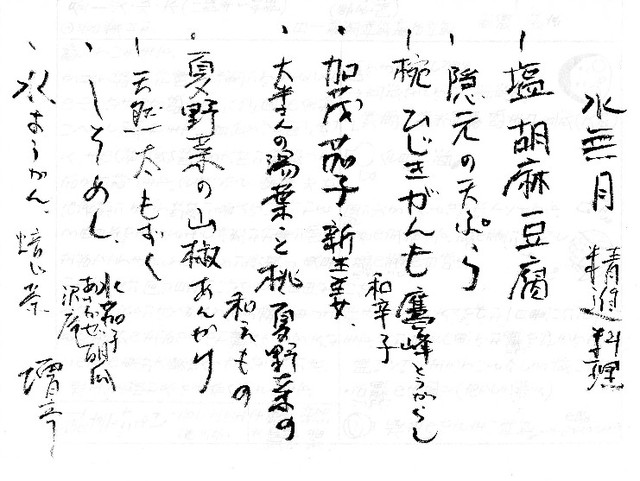 水無月 精進料理
塩胡麻豆腐
隠元の天ぷら
椀 ひじきがんも 鷹峰とうがらし
和辛子
加茂茄子、新生姜、
さんの湯葉と桃、夏野菜の
和えもの
夏野菜の山椒あんかけ
天然太もずく
しそめし、
水茄子
胡瓜
沢庵
水ようかん、焙じ茶